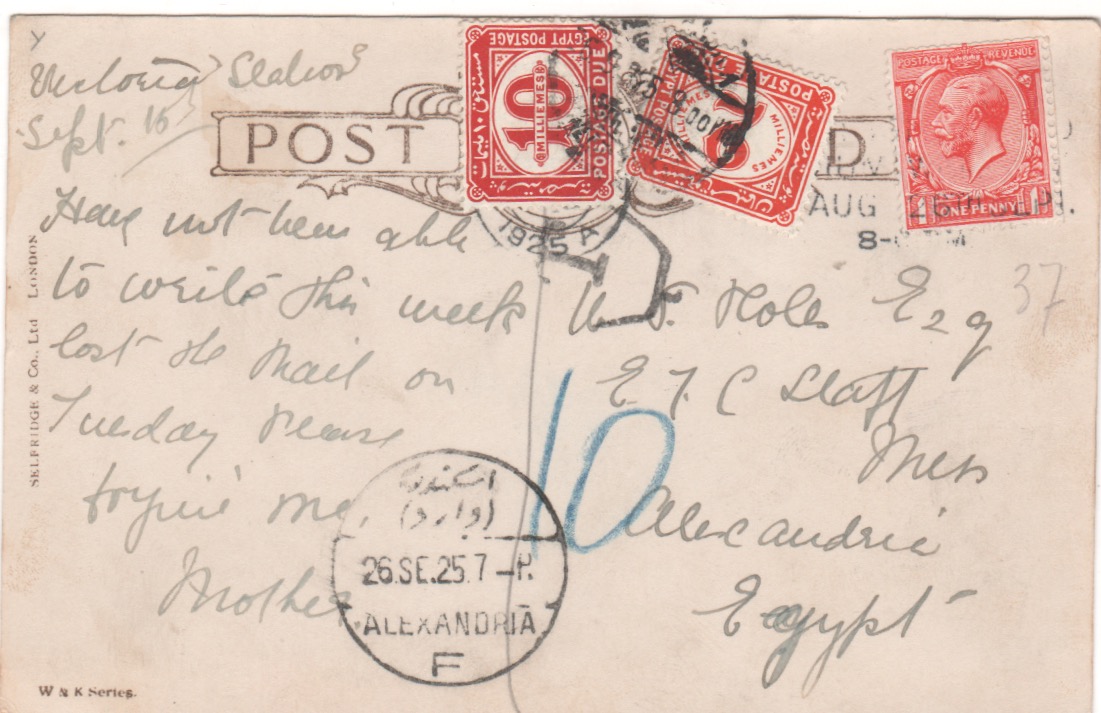 Victoria Station
Sept. 16
POST
D
Hav not been able
to write this week
lost the Mail on
Tuesday Please
forgive me.
Mother
SELFRIDGE & Co., Ltd LONDON
W & K Series.
EGYPT POSTAGE
10
MILLIEMES
POSTAGE DUE
EGYPT POSTAGE
2
MILLIEMES
MILLIEMES
POSTAGE REVENUE
1 ONE PENNY 1
AUG
8-
1925
T
37
Holes Esq
E T C Staff
Mess
Alexandria
Egypt
10
26.SE.25.7-P.
ALEXANDRIA
F